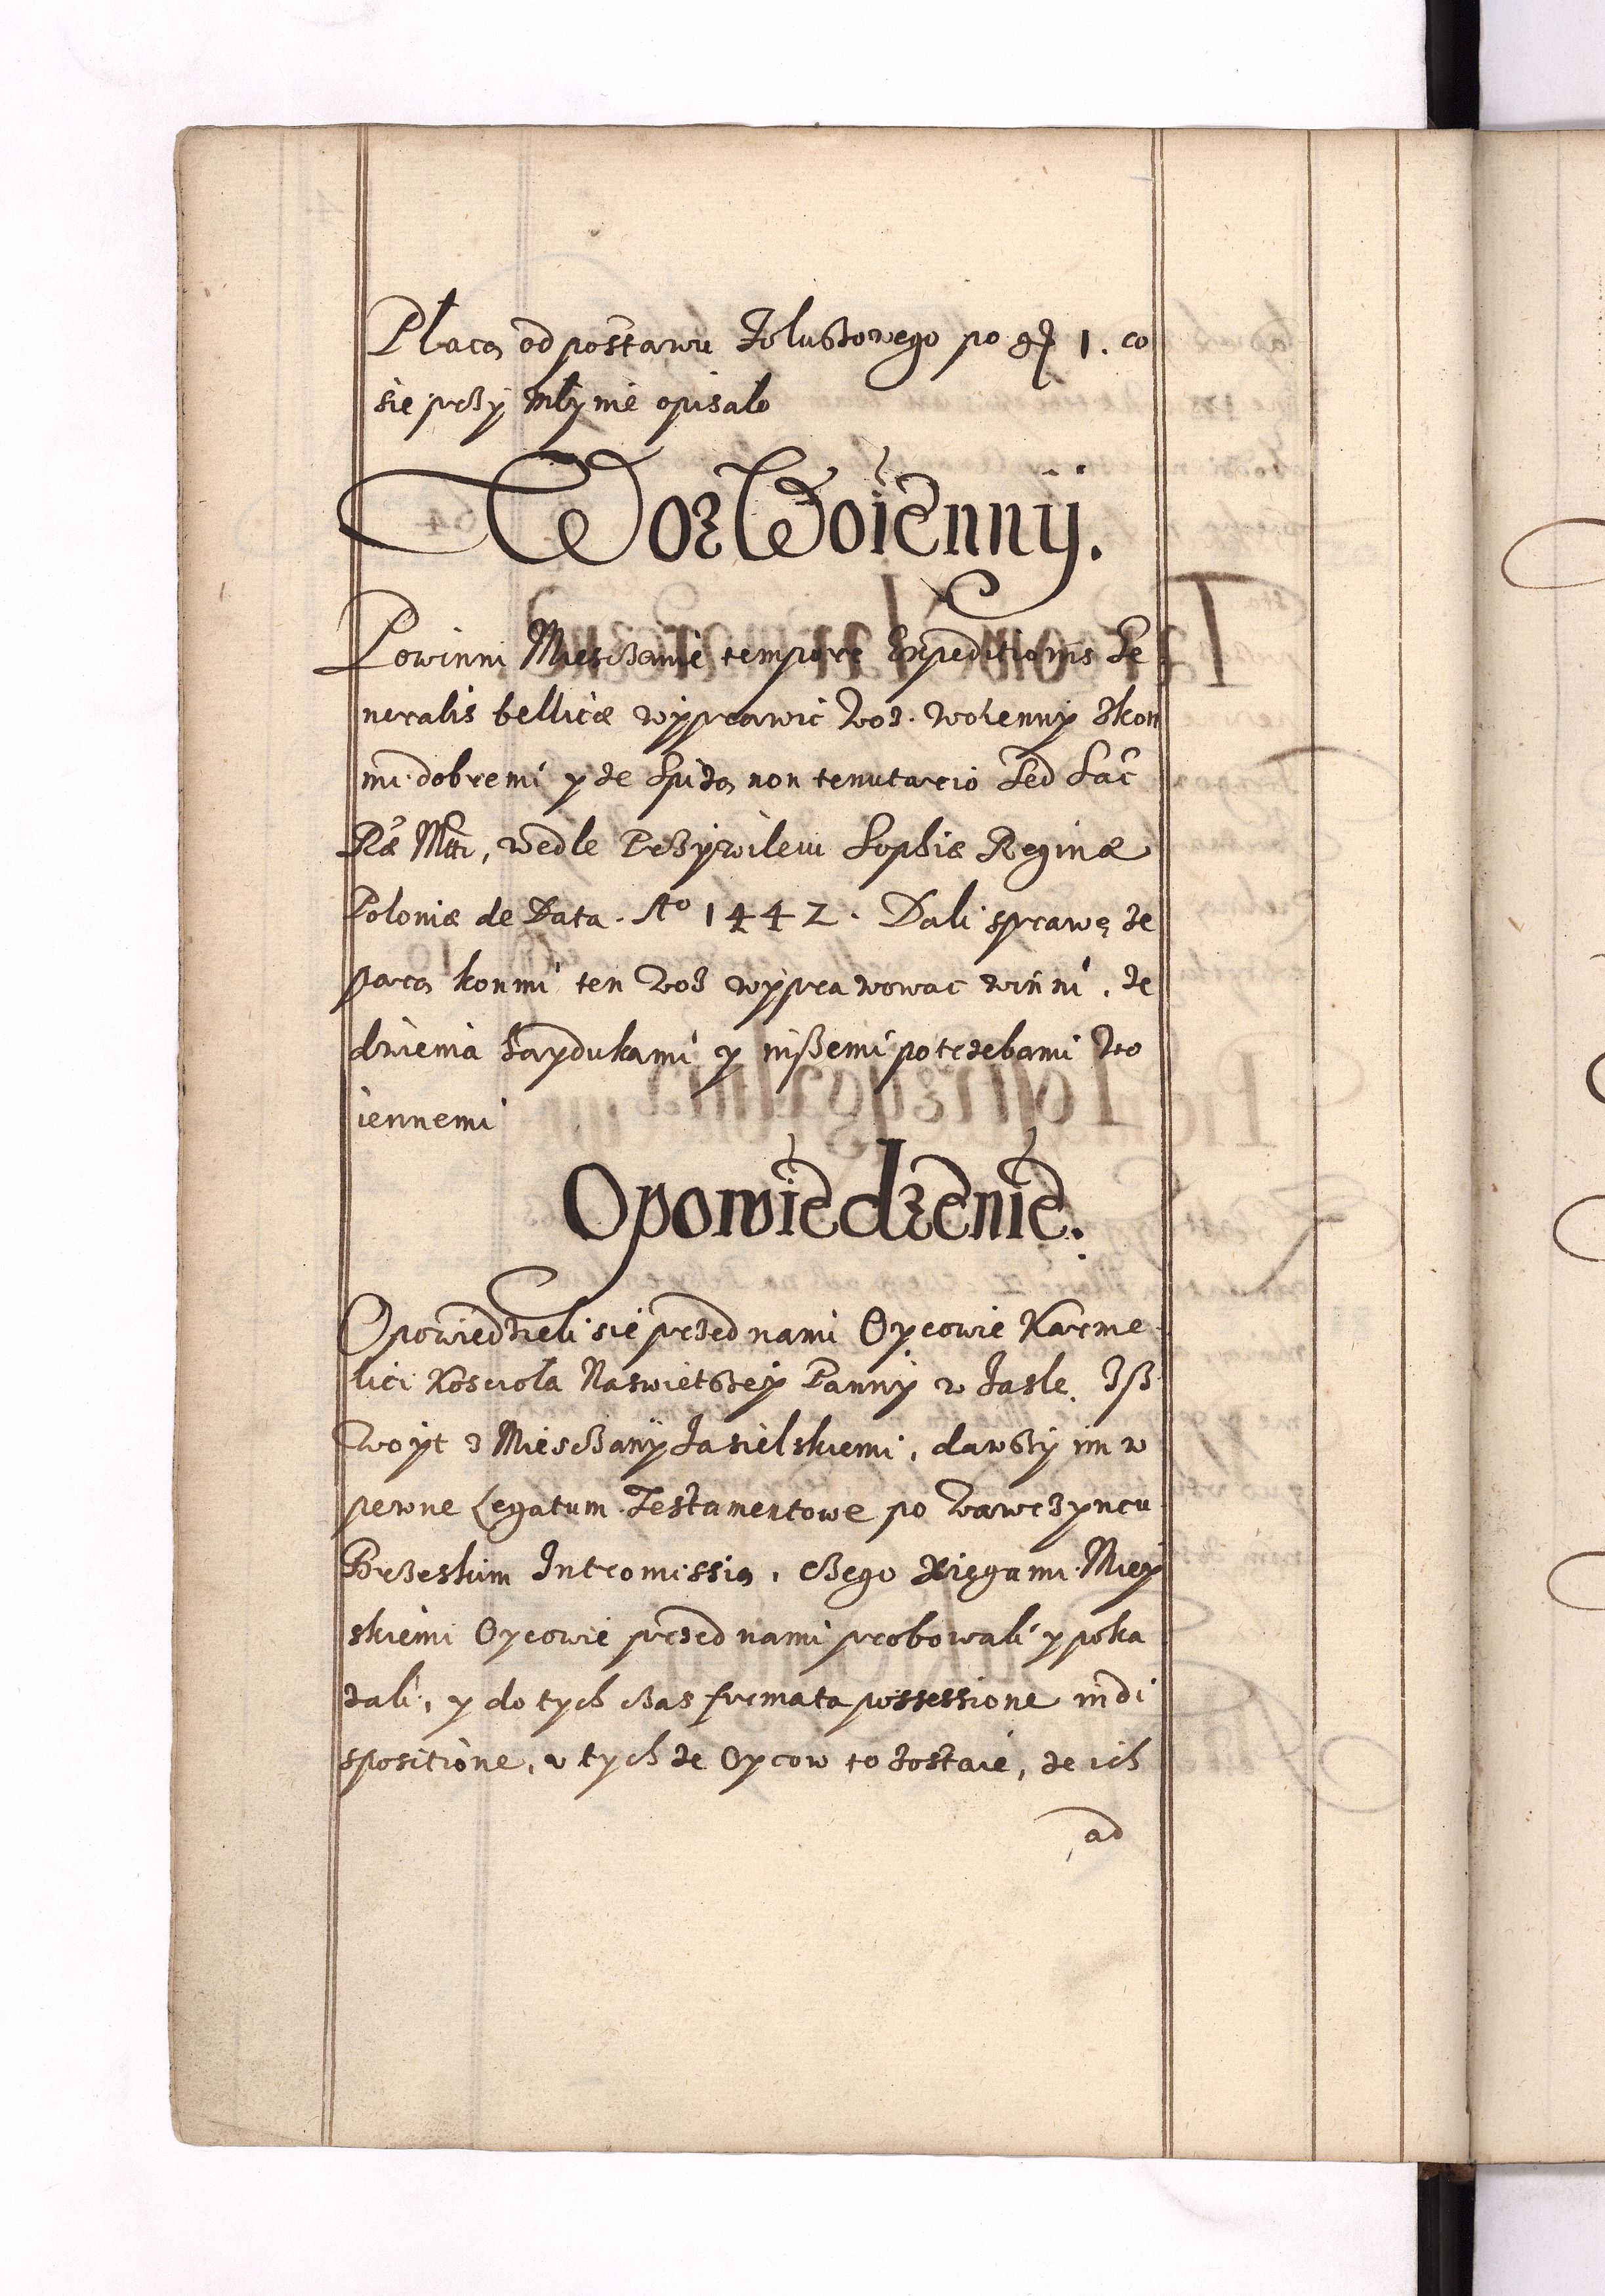 Płacą od postawu Foluszowego po gr 1. co
sie przy Młynie opisało
Woz Woienny.
Powinni Miesczanie tempore Expeditionis Ge
neralis bellicæ wyprawic woz woienny z kon
mi dobremi y ze spizą non tenutario sed Sac
Ræ Mtti, wedle Przywileiu Sophiæ Reginæ
Poloniæ de Data. Ao 1442. Dali sprawę ze
parą konmi ten woz wyprawowac winni, ze
dwiema Haydukami y inszemi potrzebami wo
iennemi
Opowiedzenie.
Opowiedzieli sie przed nami Oycowie Karme
lici Koscioła Naswietszey Panny w Jasle. Isz
Woyt z Miesczany Jasielskiemi, dawszy im w
pewne Legatum Testamentowe po Wawrzyncu
Brzeskim Intromissią, czego Xięgami Miey
skiemi Oycowie przed nami probowali y poka
zali, y do tych czas firmata possessione in di
spositione, v tych ze Oycow to zostaie, ze ich
ad